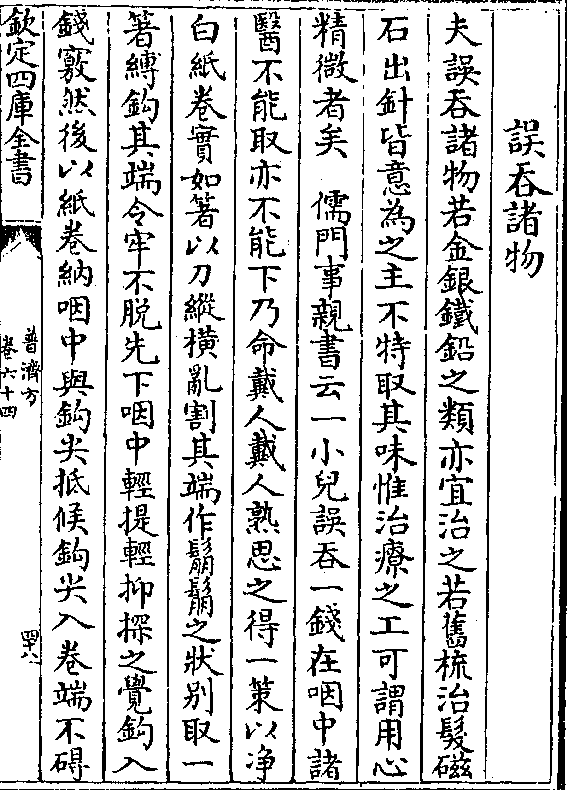 誤吞諸物
夫誤吞諸物若金銀鐵鉛之類亦宜治之若舊梳治髮磁
石出針皆意為之主不特取其味惟治療之工可謂用心
精微者矣　儒門事親書云一小兒誤吞一錢在咽中諸
醫不能取亦不能下乃命戴人戴人熟思之得一策以净
白紙卷實如箸以刀縱橫亂割其端作鬅鬙之狀别取一
箸縛鈎其端令牢不脫先下咽中輕提輕抑探之覺鈎入
錢竅然後以紙卷納咽中與鈎尖抵候鈎尖入卷端不碍
欽定四庫全書
普濟方
卷六十四
四十八